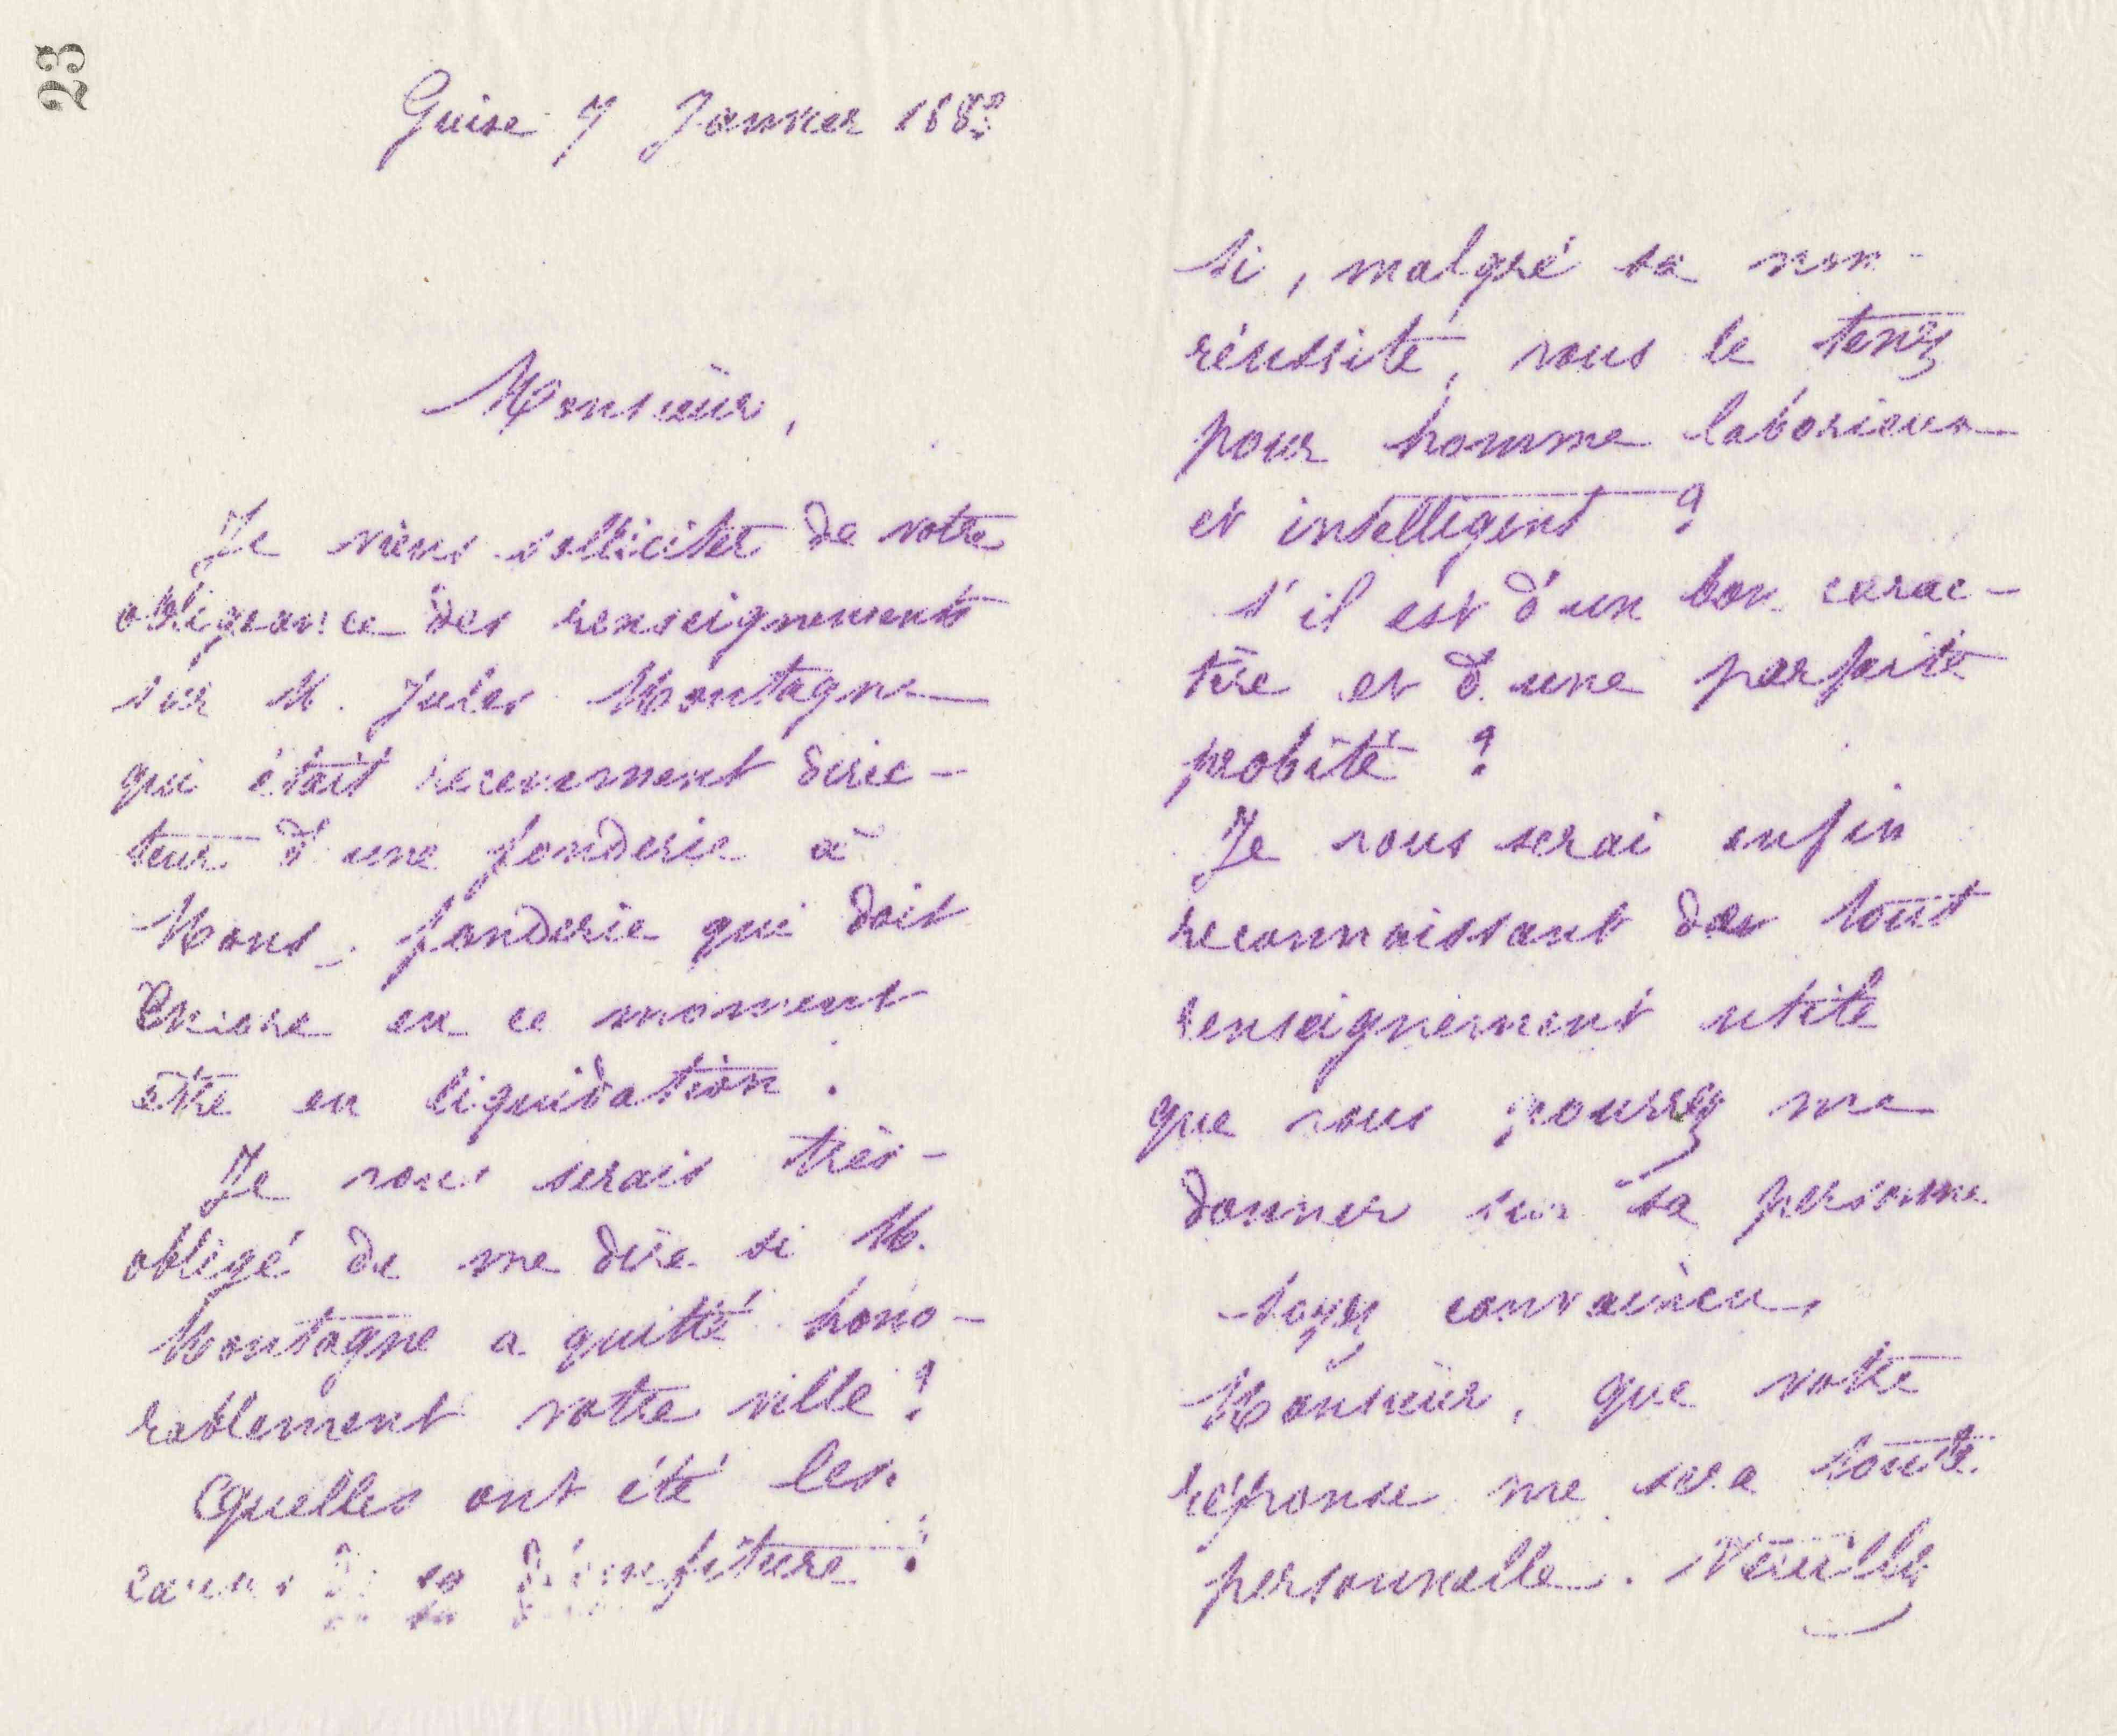 23
Guise 7 Janvier 1883
Monsieur,
Je viens solliciter de votre
obligeance des renseignements
sur M. Jules Montagne
qui était recemment direc-
teur d'une fonderie à
Mons, fonderie qui doit
encore en ce moment
être en liquidation.
Je vous serais très-
obligé de me dire si M.
Montagne a quitté hono-
rablement votre ville ?
Quelles ont été les
causes de sa déconfiture ?
si, malgré sa non-
réussite, vous le tenez
pour homme laborieux
et intelligent ?
s'il est d'un bon carac-
tère et d'une parfaite
probité ?
Je vous serai enfin
reconnaissant de tout
renseignement utile
que vous pourrez me
donner sur sa personne
Soyez convaincu,
Monsieur, que votre
réponse me sera toute
personnelle. Veuillez